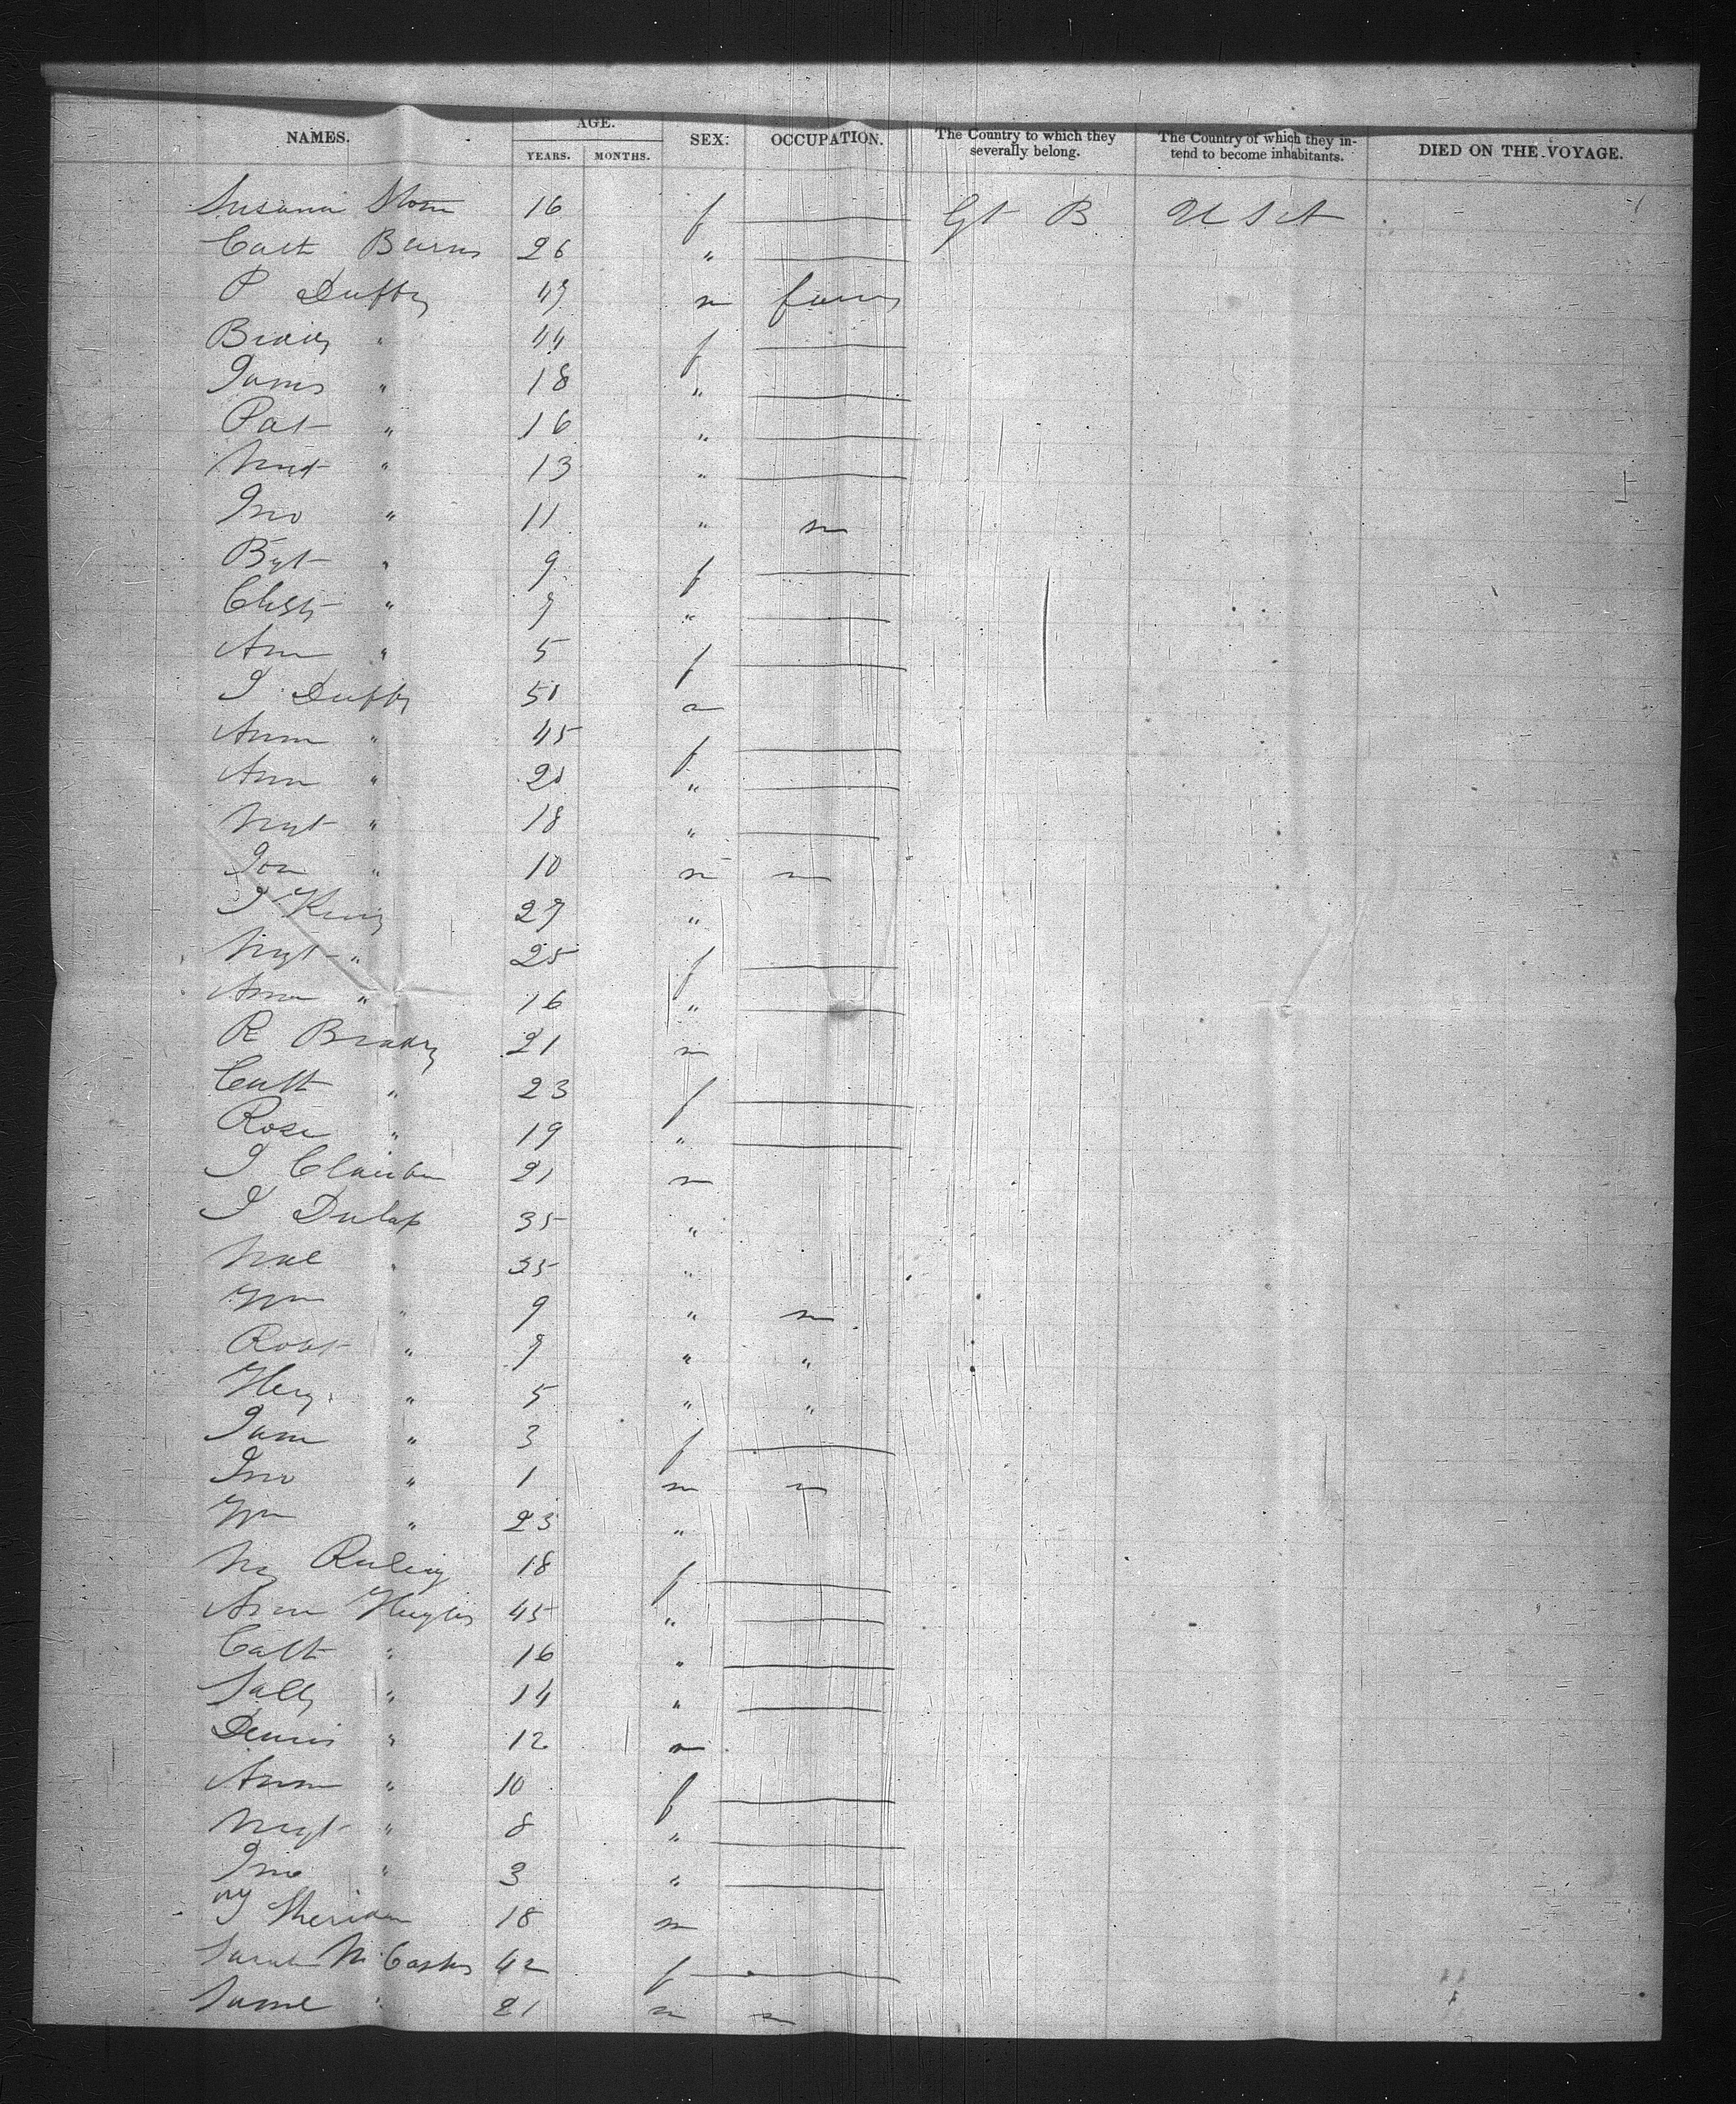 NAMES. AGE. SEX: OCCUPATION. The Country to which they severally belong. The Country of which they intend to become inhabitants. DIED ON THE VOYAGE.
YEARS. MONTHS.
Susana 16 f Gt B U S A
Cath Burns 26 "
P Duffy 47 m
" 44 f
James " 18 "
Pat " 16 "
Mgt " 13 "
Jno " 11 " m
Bgt " 9 f
" 7 "
Ann " 5 f
J Duffy 50 m
Ann " 45 f
Ann " 20 "
Mgt " 18 "
" 10 m m
J King 27 "
Mgt " 25 f
Ann " 16 "
R Brady 21 m
Cath " 23 f
Rose " 19 "
J 21 m
J Dulap 35 "
" 35 "
Wm " 9 " m
Robt " 7 " "
Hery " 5 " "
Jane " 3 f
Jno " 1 m m
Wm " 23 "
My 18 f
Ann Hughes 45 "
Cath " 16 "
Sally " 14 "
Dennis " 12 m
Ann " 10 f
Mgt " 8 "
Jno " 3 "
Sheridan 18 m
Sarah 42 f
Saml " 21 m m